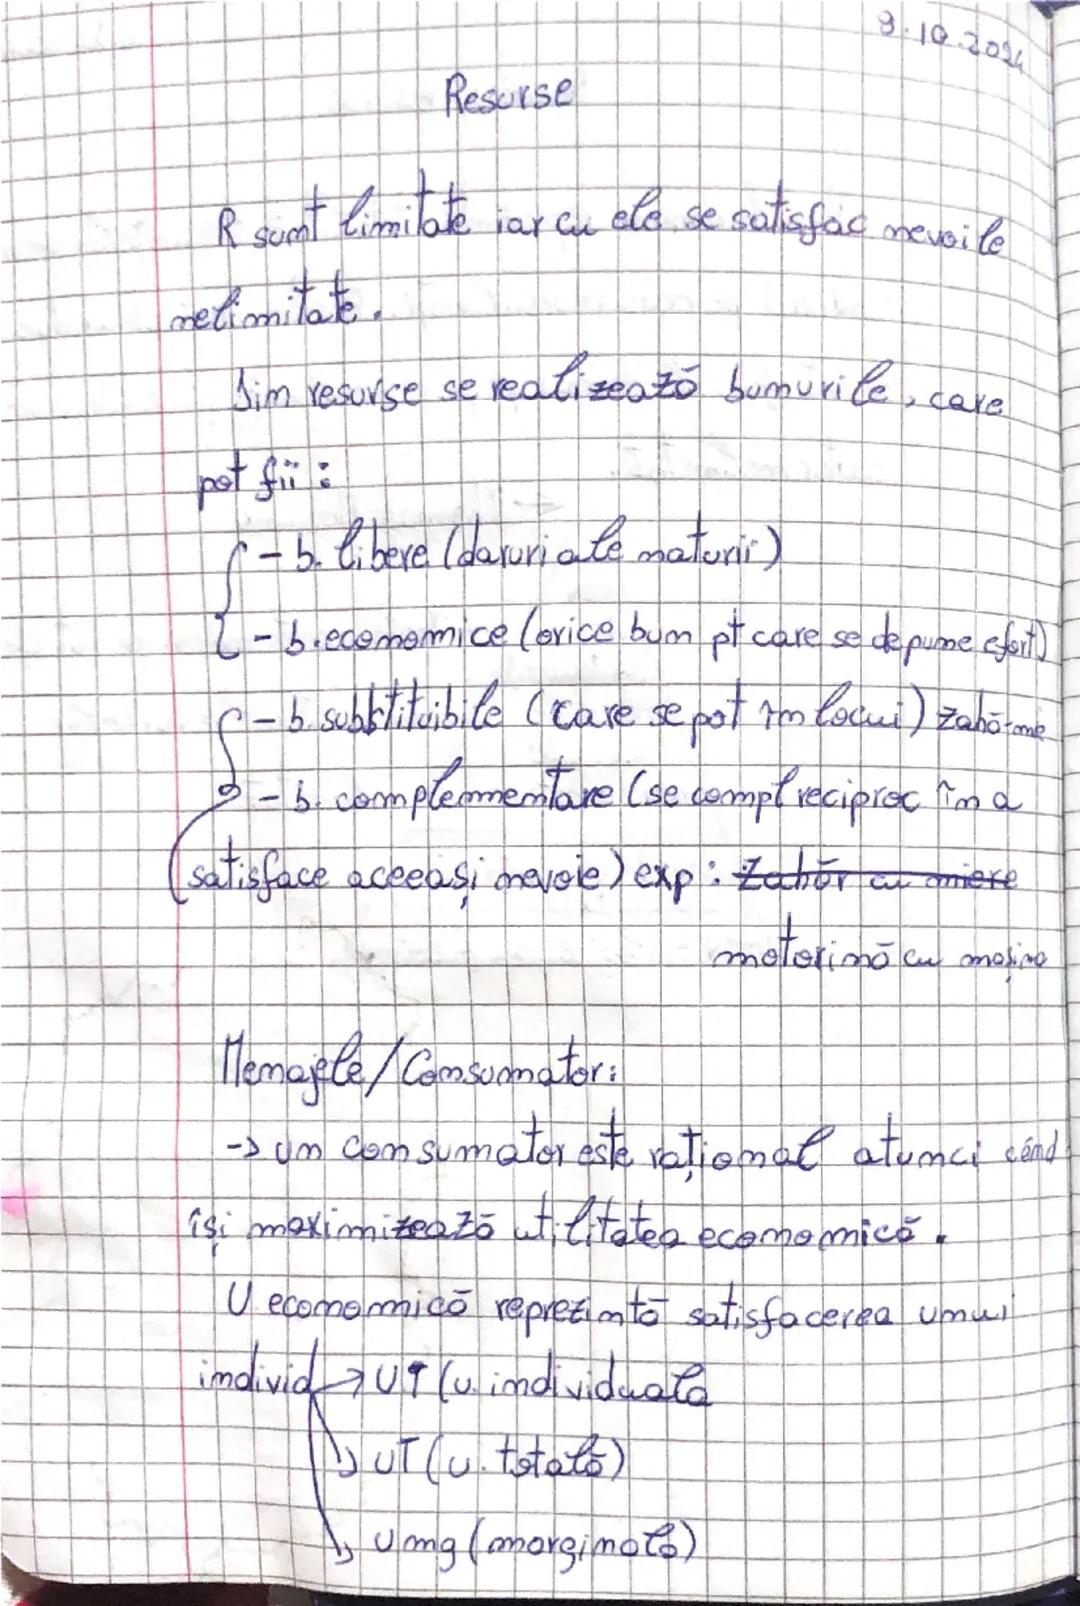 9.10.2024
Resurse
R sunt limitate iar cu ele se satisfac nevoile
nelimitate.
Din resurse se realizează bunurile, care
pot fii :
- b. libere (daruri ale naturii)
- b. economice (orice bun pt care se depune efort)
- b. substituibile (care se pot înlocui) zahă-mie
- b. complementare (se compl reciproc în a
satisface aceeași nevoie) exp : Zahăr cu miere
motorină cu mașina
Menajele/Consumator:
-> un consumator este rațional atunci când
își maximizează utilitatea economică.
U economică reprezintă satisfacerea unui
individ -> UI (u. individuala
-> UT (u. totală)
-> Umg (marginală)